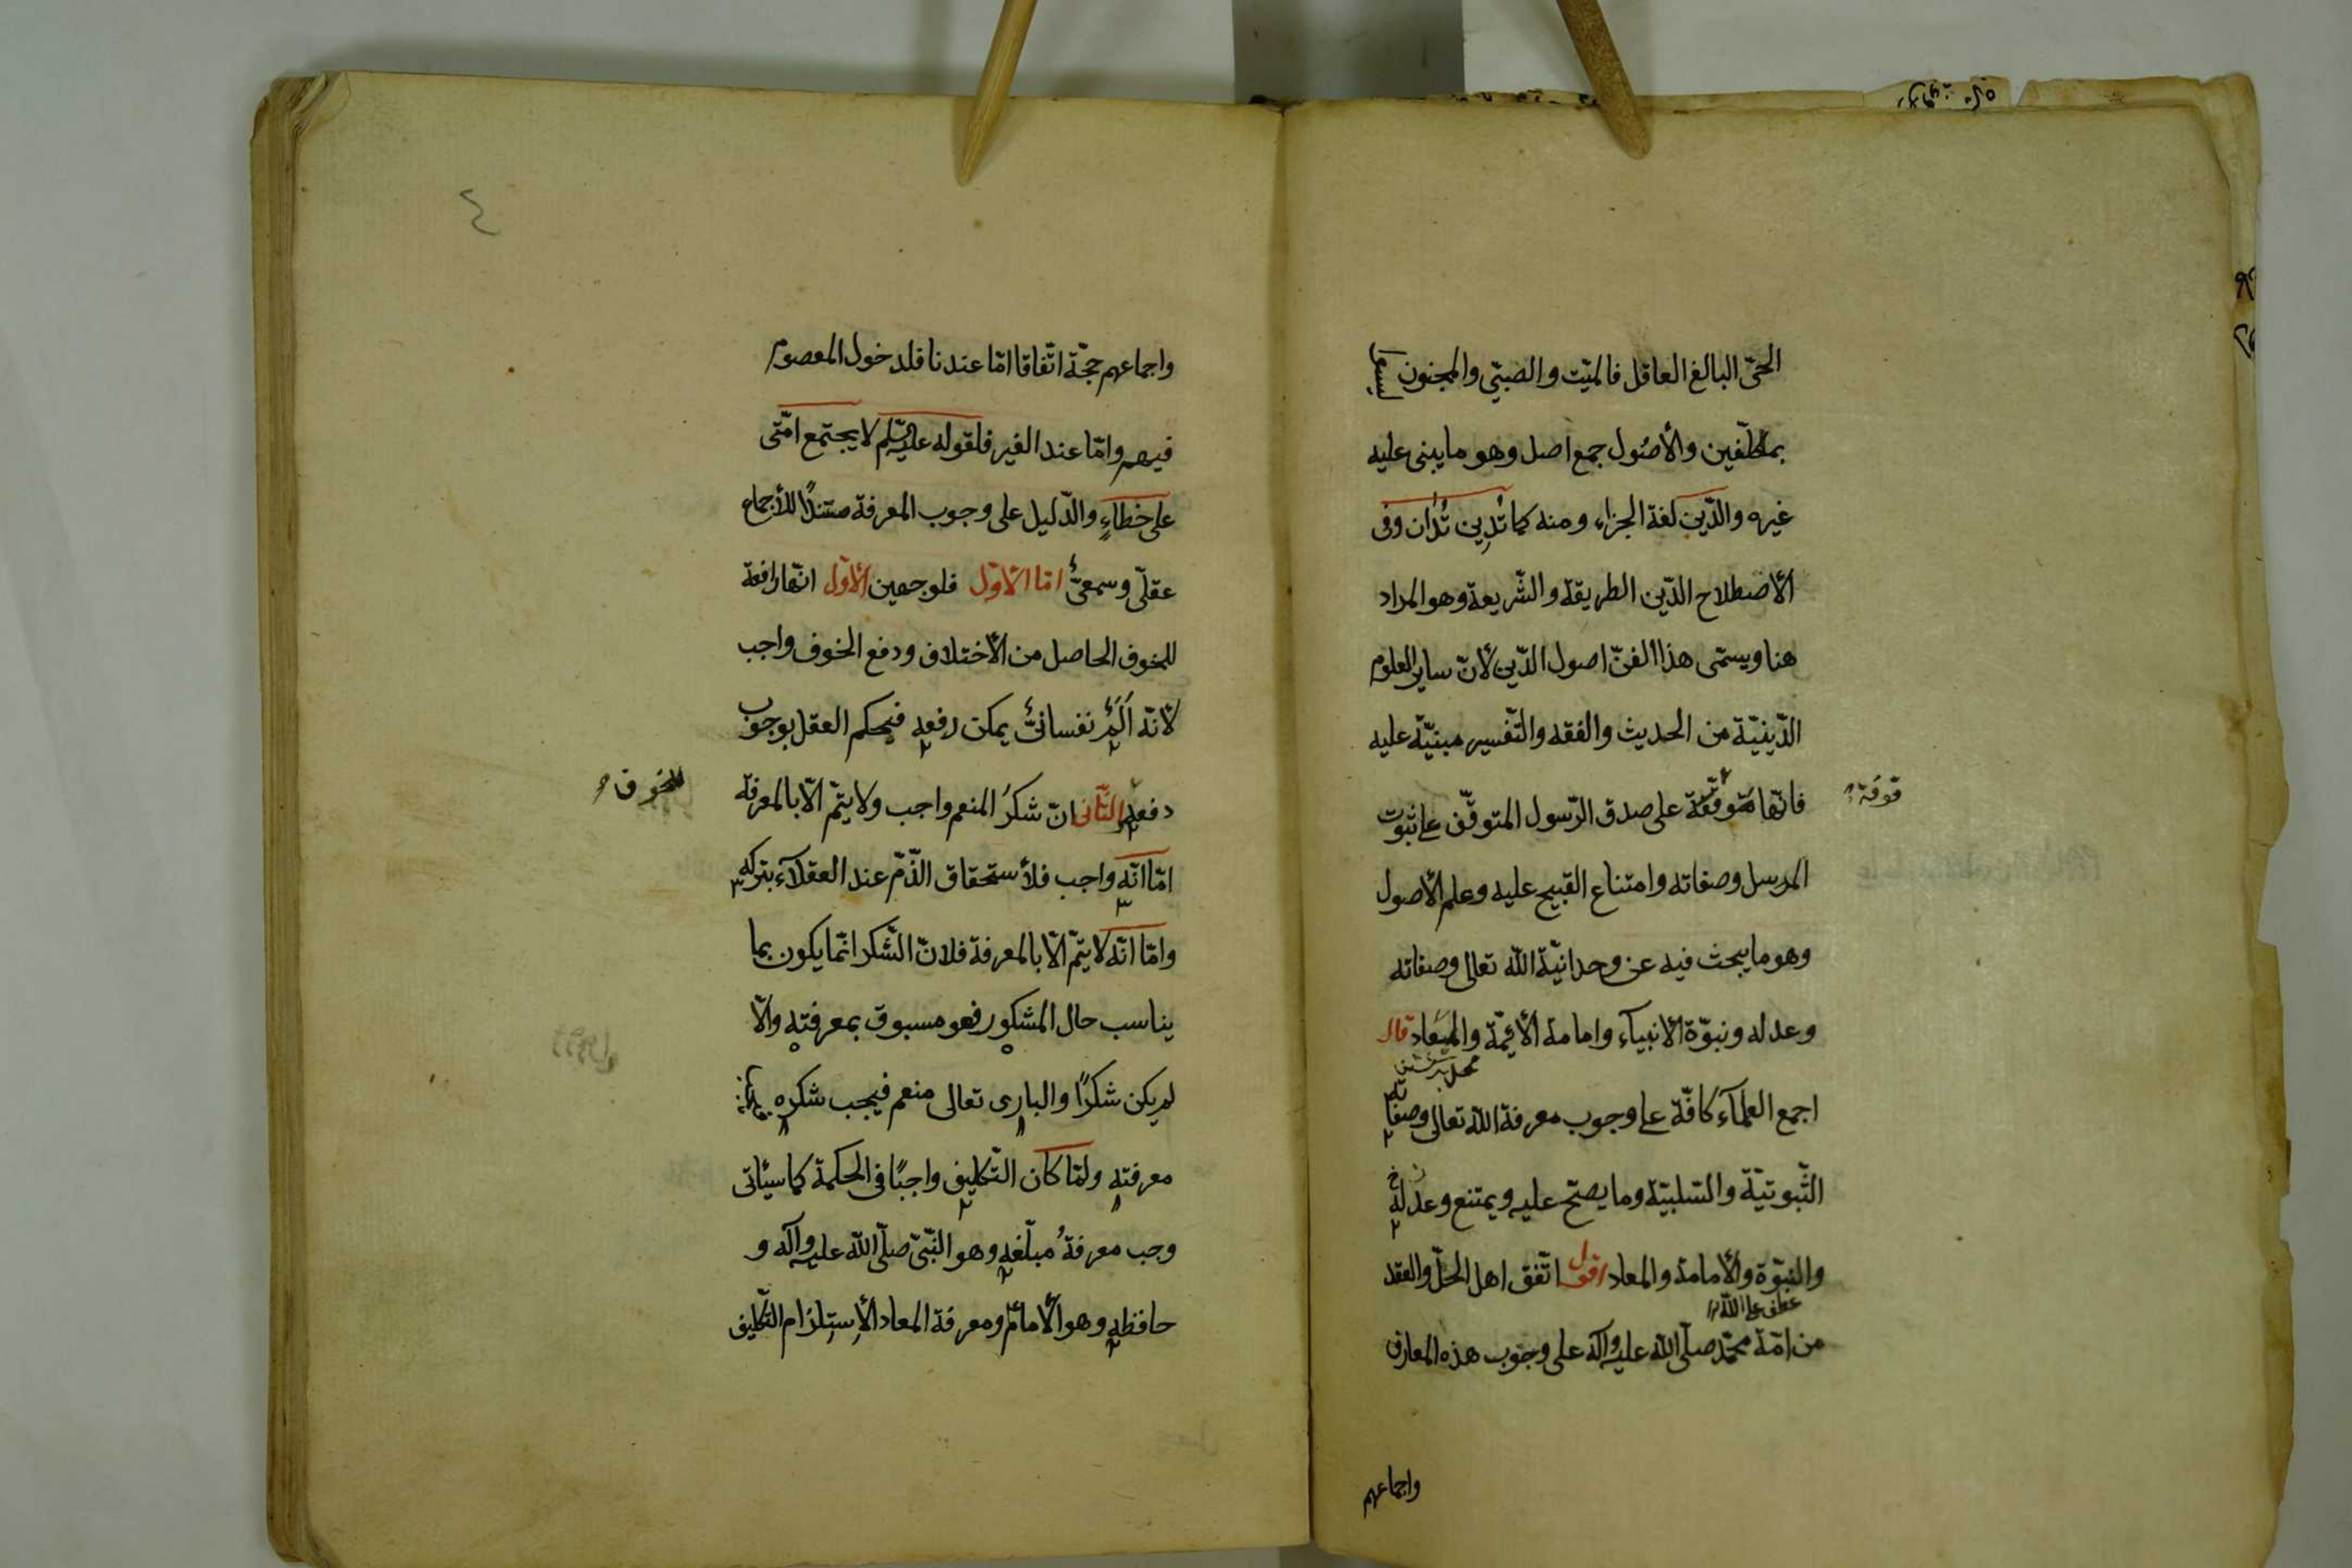 الحىّ البالغ العاقل فالميّت والصبىّ والمجنون ليسوا
بمكلّفين والأصُول جمع اصل وهو ما يبنى عليه
غيره والدّين لغة الجزاء ومنه كما تُدِين تُدَان وفى
الأصطلاح الدّين الطريقة والشّريعة وهو المراد
هنا ويسمّى هذا الفنّ اصول الدّين لأنّ ساير العلوم
الدّينيّة من الحديث والفقه والتّفسير مبنيّة عليه
فانّها متوقّفة على صدق الرّسول المتوقّف على ثبوت
قوفة
المرسل وصفاته وامتناع القبيح عليه وعلم الأصول
وهو ما يبحث فيه عن وحدانيّة الله تعالى وصفاته
وعدله ونبوّة الانبياء وامامة الأئمّة والمعاد قال
اجمع العلمآء كافّة على وجوب معرفة الله تعالى وصفاته
الثّبوتيّة والسّلبيّة وما يصحّ عليه ويمتنع وعدله
والنبوّة والأمامة والمعاد اقول اتّفق اهل الحلّ والعقد
عطف على الله
من امّة محمّد صلّى الله عليه وآله على وجوب هذه المعارف
واجماعهم
٤
واجماعهم حجّة اتّفاقا امّا عندنا فلدخول المعصوم
فيهم وامّا عند الغير فلقوله عليه السّلم لا يجتمع امّتى
على خطاءٍ والدّليل على وجوب المعرفة مستندًا للأجماع
عقلىّ وسمعىّ امّا الأوّل فلوجهين الأوّل انّها رافعة
للخوف الحاصل من الأختلاف ودفع الخوف واجب
لأنّه اَلَمٌ نفسانىّ يمكن رفعه فيحكم العقل بوجوب
دفعه الثّانى انّ شكرُ المنعم واجب ولا يتمّ الّا بالمعرفة
للخوف
امّا انّه واجب فلأستحقاق الذّمّ عند العقلآء بتركه
وامّا انّه لا يتمّ الّا بالمعرفة فلانّ الشّكر انّما يكون بما
يناسب حال المشكور فهو مسبوق بمعرفته والّا
لم يكن شكرًا والبارى تعالى منعم فيجب شكره
معرفته ولمّا كان التّكليف واجبًا فى الحكمة كما سيئاتى
وجب معرفةُ مبلّغه وهو النّبىّ صلّى الله عليه وآله و
حافظه وهو الأمام ومعرفة المعاد لأستلزام التّكليف